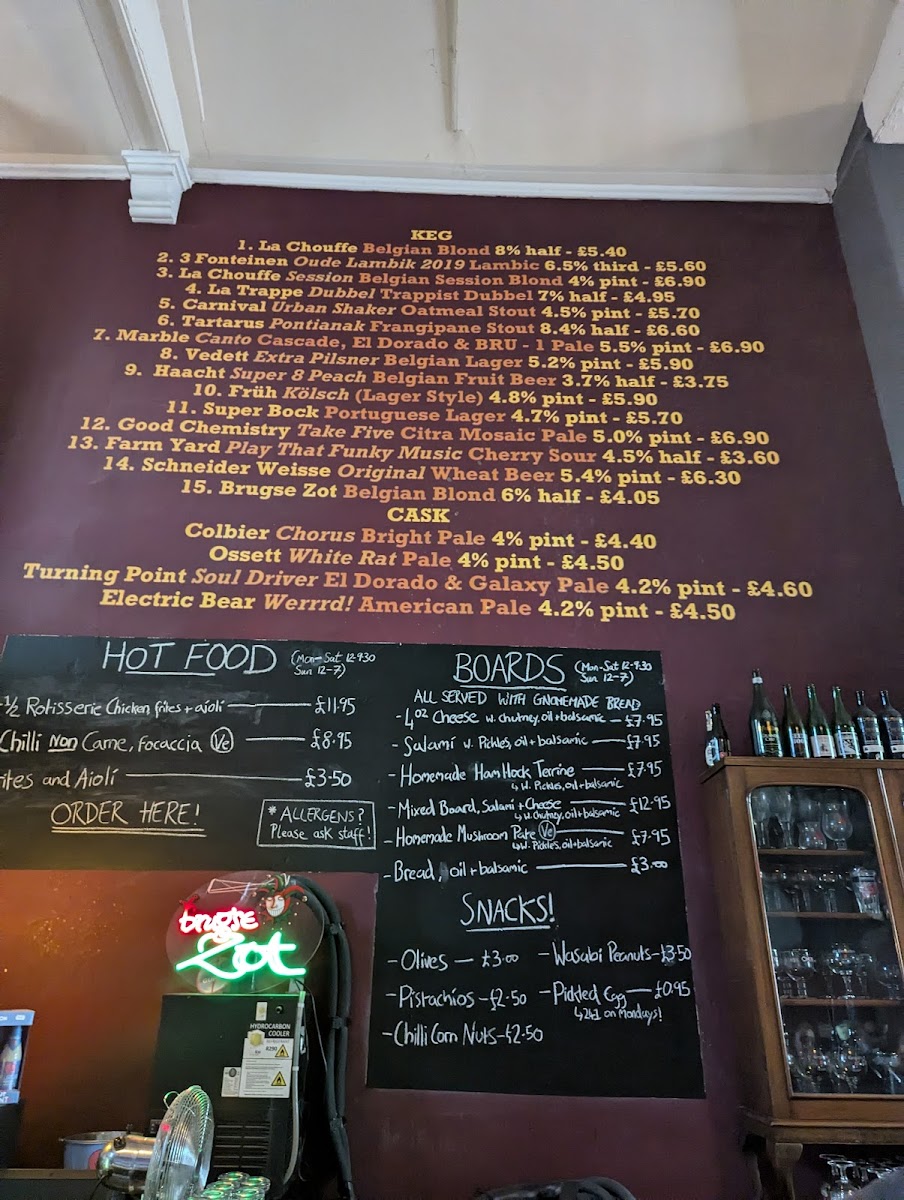 KEG
1. La Chouffe Belgian Blond 8% half - £5.40
2. 3 Fonteinen Oude Lambik 2019 Lambic 6.5% third - £5.60
3. La Chouffe Session Belgian Session Blond 4% pint - £6.90
4. La Trappe Dubbel Trappist Dubbel 7% half - £4.95
5. Carnival Urban Shaker Oatmeal Stout 4.5% pint - £5.70
6. Tartarus Pontianak Frangipane Stout 8.4% half - £6.60
7. Marble Canto Cascade, El Dorado & BRU - 1 Pale 5.5% pint - £6.90
8. Vedett Extra Pilsner Belgian Lager 5.2% pint - £5.90
9. Haacht Super 8 Peach Belgian Fruit Beer 3.7% half - £3.75
10. Früh Kölsch (Lager Style) 4.8% pint - £5.90
11. Super Bock Portuguese Lager 4.7% pint - £5.70
12. Good Chemistry Take Five Citra Mosaic Pale 5.0% pint - £6.90
13. Farm Yard Play That Funky Music Cherry Sour 4.5% half - £3.60
14. Schneider Weisse Original Wheat Beer 5.4% pint - £6.30
15. Brugse Zot Belgian Blond 6% half - £4.05
CASK
Colbier Chorus Bright Pale 4% pint - £4.40
Ossett White Rat Pale 4% pint - £4.50
Turning Point Soul Driver El Dorado & Galaxy Pale 4.2% pint - £4.60
Electric Bear Werrrd! American Pale 4.2% pint - £4.50
HOT FOOD (Mon-Sat 12-9.30
Sun 12-7)
½ Rotisserie Chicken frites + aioli £11.95
Chilli Non Carne, focaccia Ve £8.95
rites and Aioli £3.50
ORDER HERE!
* ALLERGENS?
Please ask staff!
BOARDS (Mon-Sat 12-9.30
Sun 12-7)
ALL SERVED WITH GNONEMADE BREAD
- 4oz Cheese w. chutney, oil + balsamic - £7.95
- Salami w. Pickles, oil + balsamic - £7.95
- Homemade Ham Hock Terrine - £7.95
↳ w. Pickles, oil + balsamic
- Mixed Board, Salami + Cheese - £12.95
↳ w. Chutney, oil + balsamic
- Homemade Mushroom Pate Ve - £7.95
↳ w. Pickles, oil + balsamic
- Bread, oil + balsamic - £3.00
SNACKS!
- Olives - £3.00
- Wasabi Peanuts - £3.50
- Pistachios - £2.50
- Pickled Egg - £0.95
↳ 241 on Mondays!
- Chilli Corn Nuts - £2.50
brugse
Zot
HYDROCARBON
COOLER
R290